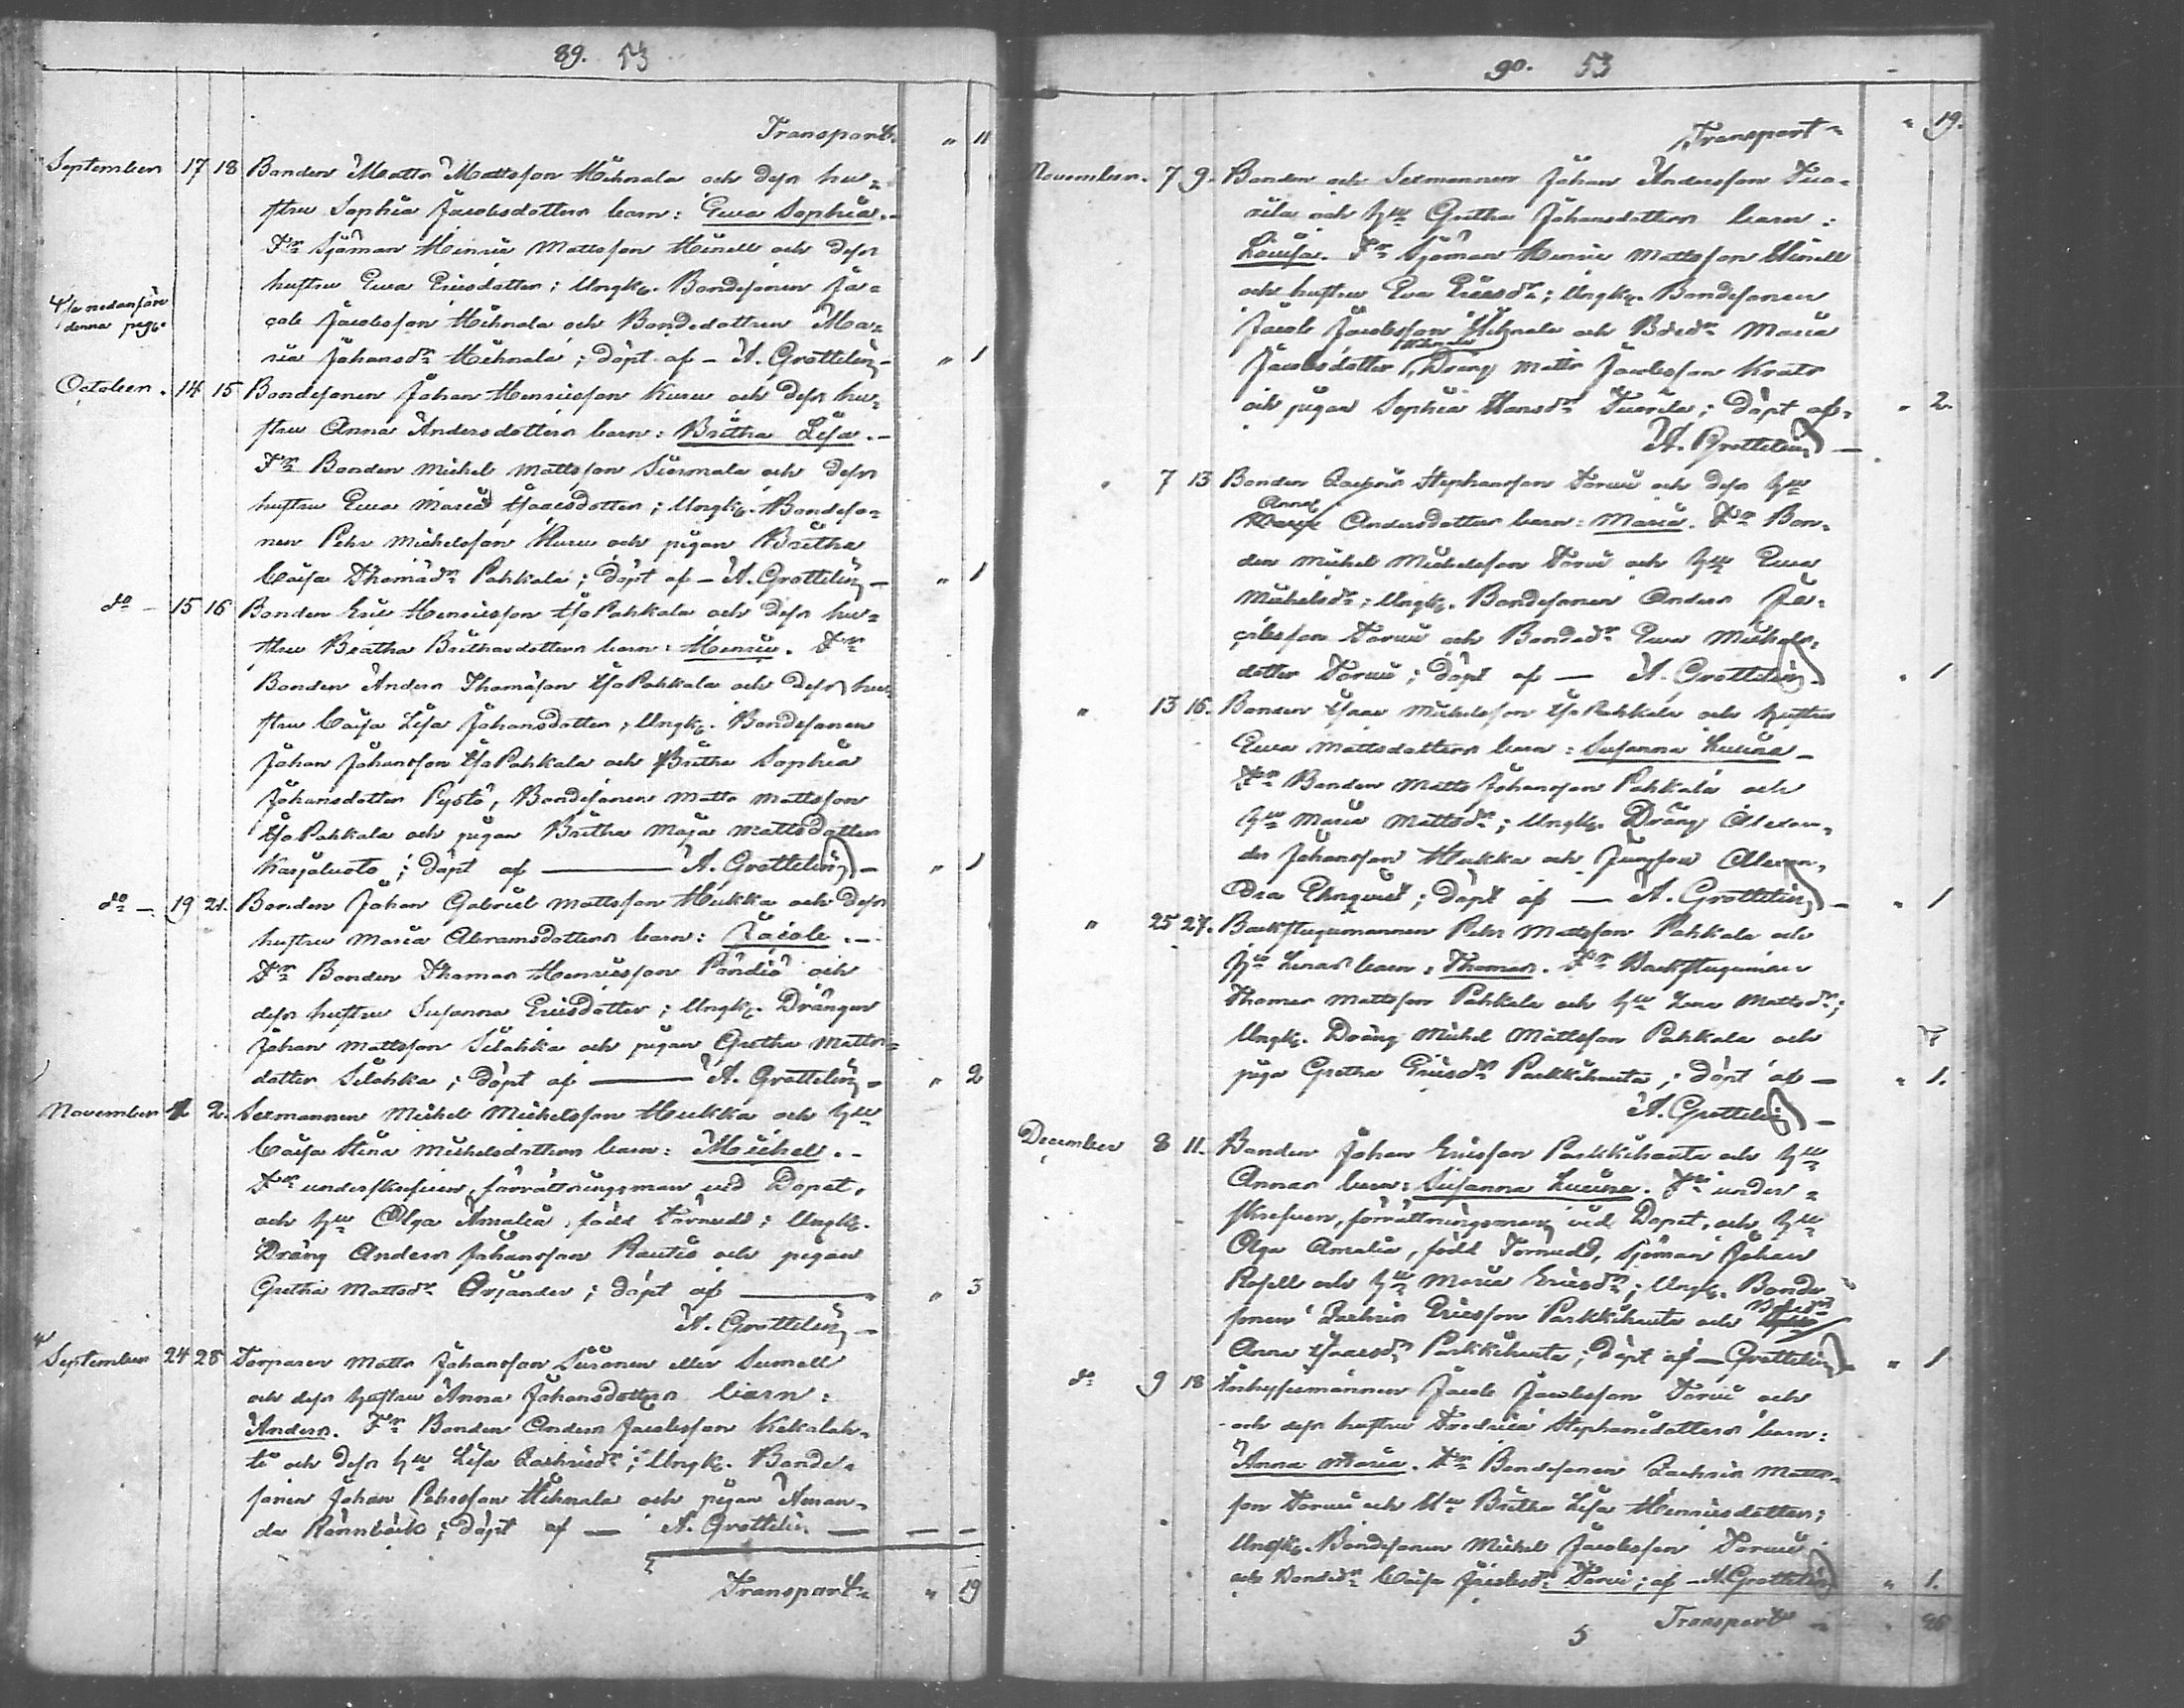 89. 53
Transport. " 11
September 17 18 Bonden Matts Mattsson Hihnala och dess hu-
strus Sophia Jacobsdotters barn: Ewa Sophia. -
Fr Sjöman Henric Mattsson Hinell och dess
hustru Ewa Ericsdotter; Ungk. Bondesonen Ja-
cob Jacobsson Hihnala och Bondedottren Ma-
ria Johansdr Hihnala; döpt af - A. Grottelin - " 1
# Se nedanföre
denna pag.
October. 14 15 Bondesonen Johan Henricsson Kuru och dess hu-
strus Anna Andersdotters barn: Britha Lisa. -
Fr Bonden Michel Mattsson och dess
hustru Ewa Maria Isacsdotter; Ungk. Bondeso-
nen Pehr Michelsson Kuru och pigan Britha
Caisa Thomædr Pahkala; döpt af - A. Grottelin - " 1
do - 15 16 Bonden Eric Henricsson IsoPahkala och dess hu-
strus Beatha Brithasdotters barn: Henric. Fr
Bonden Anders Thomasson IsoPahkala och dess hu-
stru Caisa Lisa Johansdotter; Ungk. Bondesonen
Johan Johansson IsoPahkala och Britha Sophia
Johansdotter Pystö, Bondesonen Matts Mattsson
IsoPahkala och pigan Britha Maja Mattsdotter
Karjaluoto; döpt af - A. Grottelin - " 1
do - 19 21. Bonden Johan Gabriel Mattsson Hukka och dess
hustrus Maria Abramsdotters barn: Jacob. -
Fr Bonden Thomas Henricsson och
dess hustru Susanna Ericsdotter; Ungk. Drängen
Johan Mattsson Silahka och pigan Gretha Matts-
dotter Silahka; döpt af - A. Grottelin - " 2
November 1 2. Sexmannen Michel Michelsson Hukka och hus
Caisa Stina Michelsdotters barn: Michel. -
Fr underskrefven, förrättningsman vid Dopet,
och hu Olga Amalia, född Törnudd; Ungk.
Dräng Anders Johansson Rautio och pigan
Gretha Mattsdr Örjander; döpt af - " 3
A. Grottelin -
# September 24 28 Torparen Matts Johansson Siironen eller Sumell
och dess hustrus Anna Johansdotters barn:
Anders. Fr Bonden Anders Jacobsson Kekolah-
ti och dess hu Lisa Zachrisdr; Ungk. Bonde-
sonen Johan Pehrsson Hihnala och pigan Aman-
da Rönnbäck; döpt af - A. Grottelin - - -
Transport " 19
90. 53
Transport - " 19.
November. 7 9. Bonden och Sexmannen Johan Andersson Tuo-
rila och hus Gretha Johansdotters barn:
Lovisa. Fr Sjöman Henric Mattsson Hinell
och hustru Eva Ericsdr; Ungk. Bondesonen
Jacob Jacobsson Hihnala och Bdedr Maria
Hihnala
Jacobsdotter, Dräng Matts Jacobsson Krats
och pigan Sophia Hansdr Tuorila; döpt af - " 2.
A. Grottelin -
" 7 13 Bonden Zachris Stephansson Torvi och dess hus
Anna
Andersdotters barn: Maria. Fr Bon-
den Michel Michelsson Torvi och hu Ewa
Michelsdr; Ungk. Bondesonen Anders Ja-
cobsson Torvi och Bondedr Ewa Michels-
dotter Torvi; döpt af - A. Grottelin - " 1
" 13 16. Bonden Isaac Michelsson IsoPahkala och hustrus
Ewa Mattsdotters barn: Susanna Lucina -
Fr Bonden Matts Johansson Pahkala och
hu Maria Mattsdr; Ungk. Dräng Alexan-
der Johansson Hukka och Jungfru Alexan-
dra Ehnqvist; döpt af - A. Grottelin - " 1
" 25 27. Backstugumannen Pehr Mattsson Pahkala och
hus Lenas barn: Thomas. Fr Backstuguman
Thomas Mattsson Pahkala och hu Lena Mattsdr;
Ungk. Dräng Michel Mattsson Pahkala och
piga Gretha Ericsdr Parkkihauta; döpt af - " 1.
A. Grottelin -
December 8 11. Bonden Johan Ericsson Parkkihauta och hus
Annas barn: Susanna Lucina. Fr under-
skrefven, förrättningsman vid Dopet, och hu
Olga Amalia, född Törnudd, Sjöman Johan
Rosell och hu Maria Ericsdr; Ungk. Bonde-
sonen Zachris Ericsson Parkkihauta och Bdedr
Anna Isacsdr Parkkihauta; döpt af - Grottelin - " 1
do 9 18 Inhysesmannen Jacob Jacobsson Torvi och
- och dess hustrus Fredrica Stephansdotters barn:
Anna Maria. Fr Bondesonen Zachris Matts-
son Torvi och Hu Britha Lisa Henricsdotter;
Ungk. Bondesonen Michel Jacobsson Torvi
och Bondedr Caisa Jacobsdr Torvi; af - A. Grottelin " 1.
Transport - " 26
5